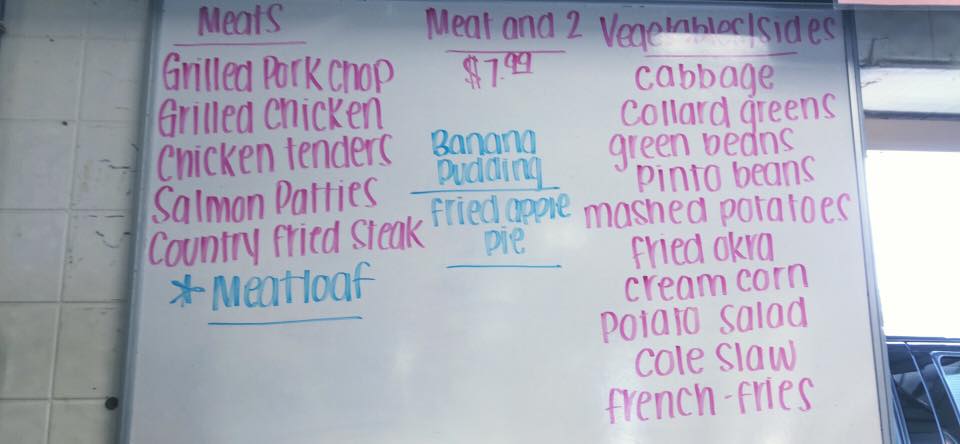 Meats
Grilled Pork chop
Grilled Chicken
Chicken tenders
Salmon Patties
Country fried Steak
* Meatloaf
Meat and 2
$7.99
Banana
Pudding
fried apple
pie
Vegetables/sides
cabbage
collard greens
green beans
pinto beans
mashed potatoes
fried okra
cream corn
Potato salad
cole slaw
french-fries